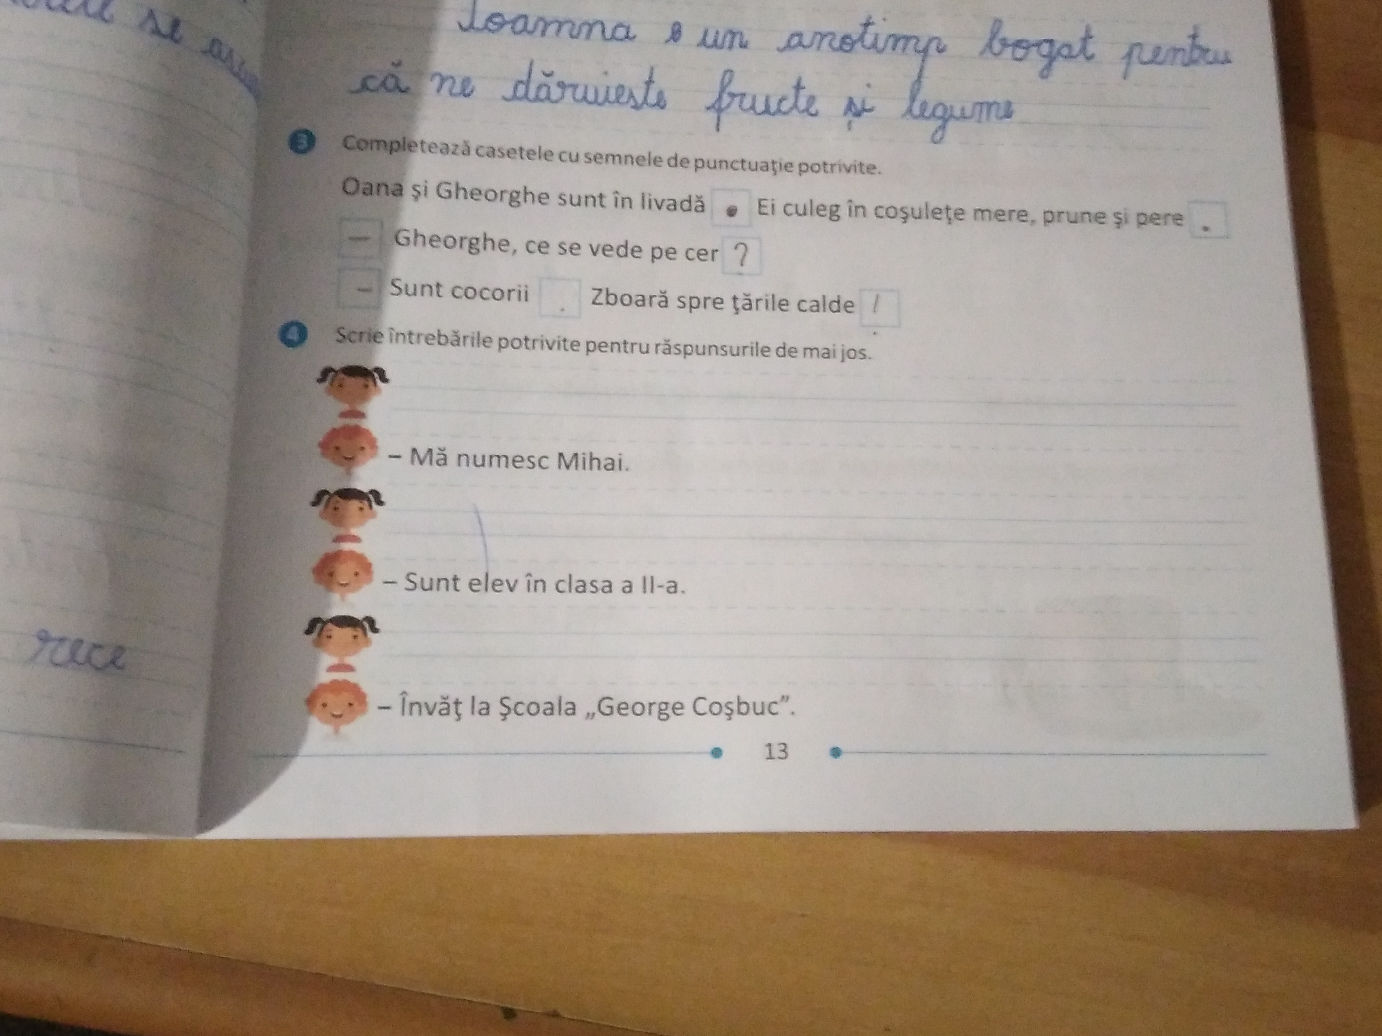 se
Toamna e un anotimp bogat pentru
că ne dăruiește fructe și legume
3 Completează casetele cu semnele de punctuaţie potrivite.
Oana şi Gheorghe sunt în livadă . Ei culeg în coşuleţe mere, prune şi pere .
– Gheorghe, ce se vede pe cer ?
– Sunt cocorii . Zboară spre ţările calde !
4 Scrie întrebările potrivite pentru răspunsurile de mai jos.
– Mă numesc Mihai.
– Sunt elev în clasa a II-a.
– Învăţ la Şcoala „George Coşbuc”.
13
rece